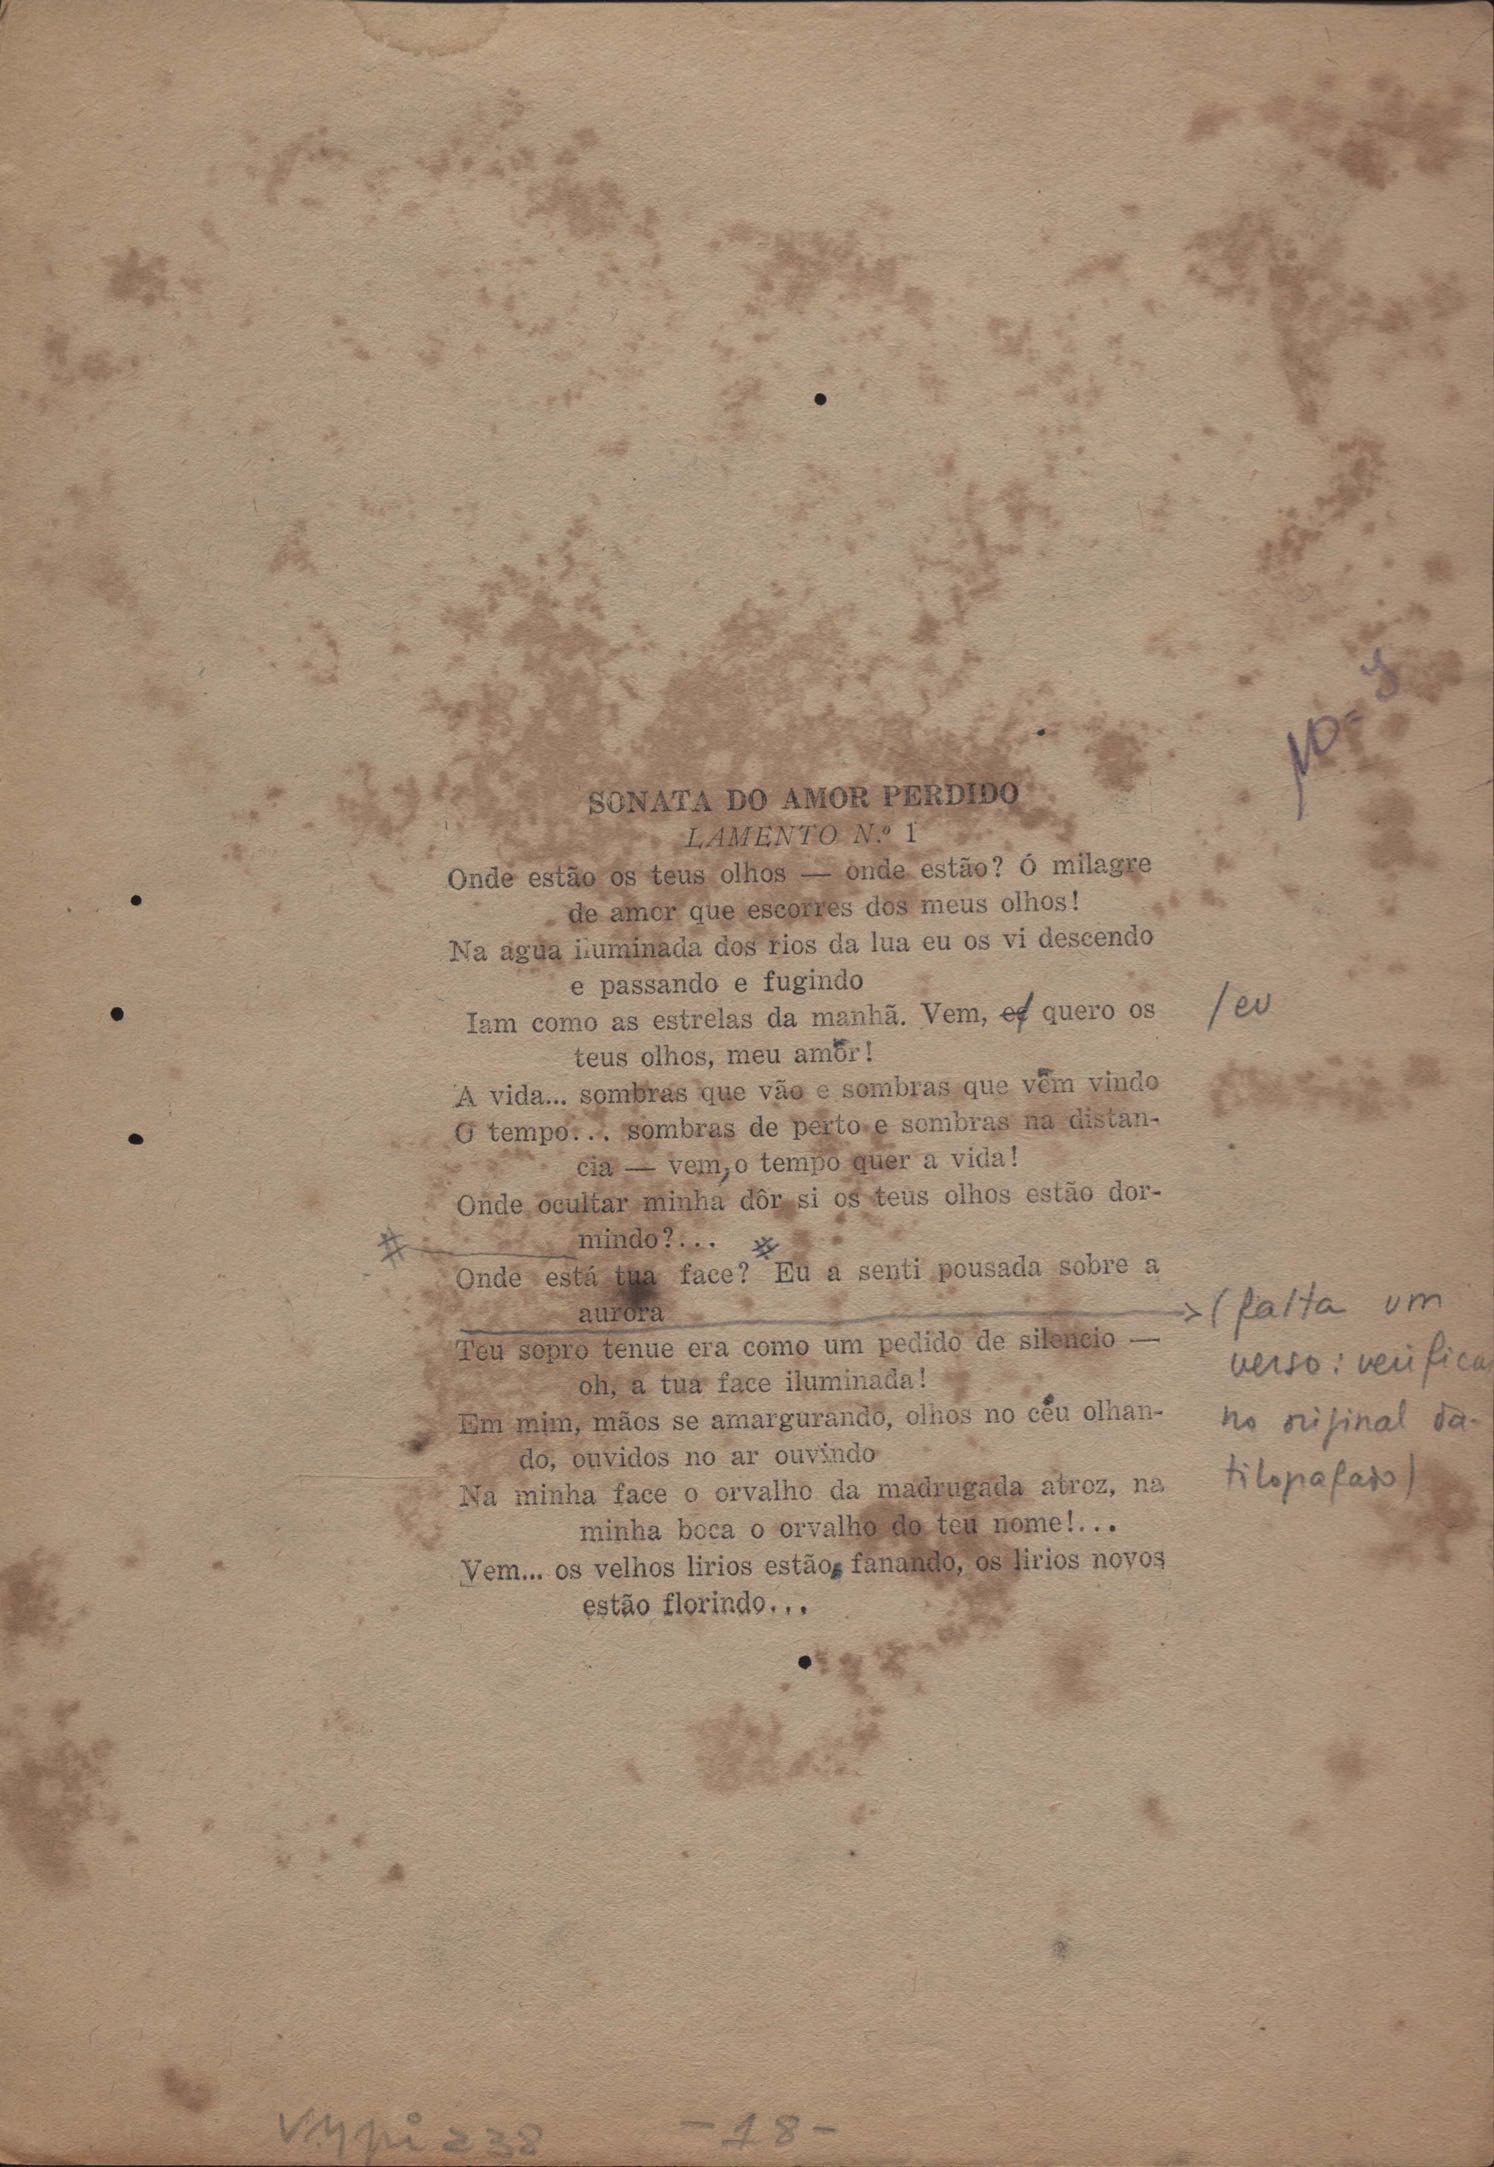 10-3
SONATA DO AMOR PERDIDO
LAMENTO N.º 1
Onde estão os teus olhos — onde estão? Ó milagre
de amor que escorres dos meus olhos!
Na agua iluminada dos rios da lua eu os vi descendo
e passando e fugindo
Iam como as estrelas da manhã. Vem, quero os /eu
teus olhos, meu amôr!
A vida... sombras que vão e sombras que vêm vindo
O tempo... sombras de perto e sombras na distan-
cia — vem, o tempo quer a vida!
Onde ocultar minha dôr si os teus olhos estão dor-
# mindo?... #
Onde está tua face? Eu a senti pousada sobre a
aurora (falta um
Teu sopro tenue era como um pedido de silencio — verso: verifica
oh, a tua face iluminada!
Em mim, mãos se amargurando, olhos no céu olhan- no original da-
do, ouvidos no ar ouvindo
Na minha face o orvalho da madrugada atroz, na tilografado)
minha boca o orvalho do teu nome!...
Vem... os velhos lirios estão fanando, os lirios novos
estão florindo...
VMpi 238 -18-